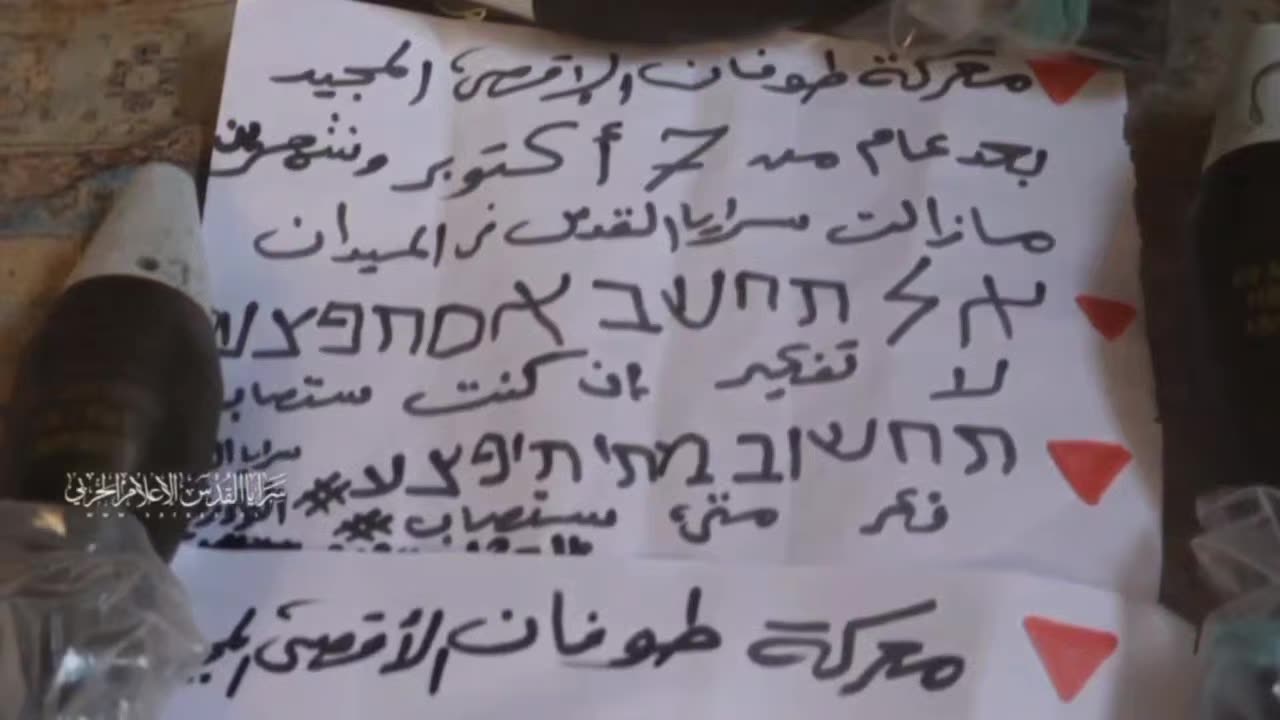 معركة طوفان الأقصى المجيد
بعد عام من 7 أكتوبر وشهرين
مازالت سرايا القدس في الميدان
אל תחשב אם תפצע
لا تفكير إن كنت ستصاب
תחשוב מתי תיפצע
فكر متى ستصاب
سرايا القدس الإعلام الحربي
معركة طوفان الأقصى